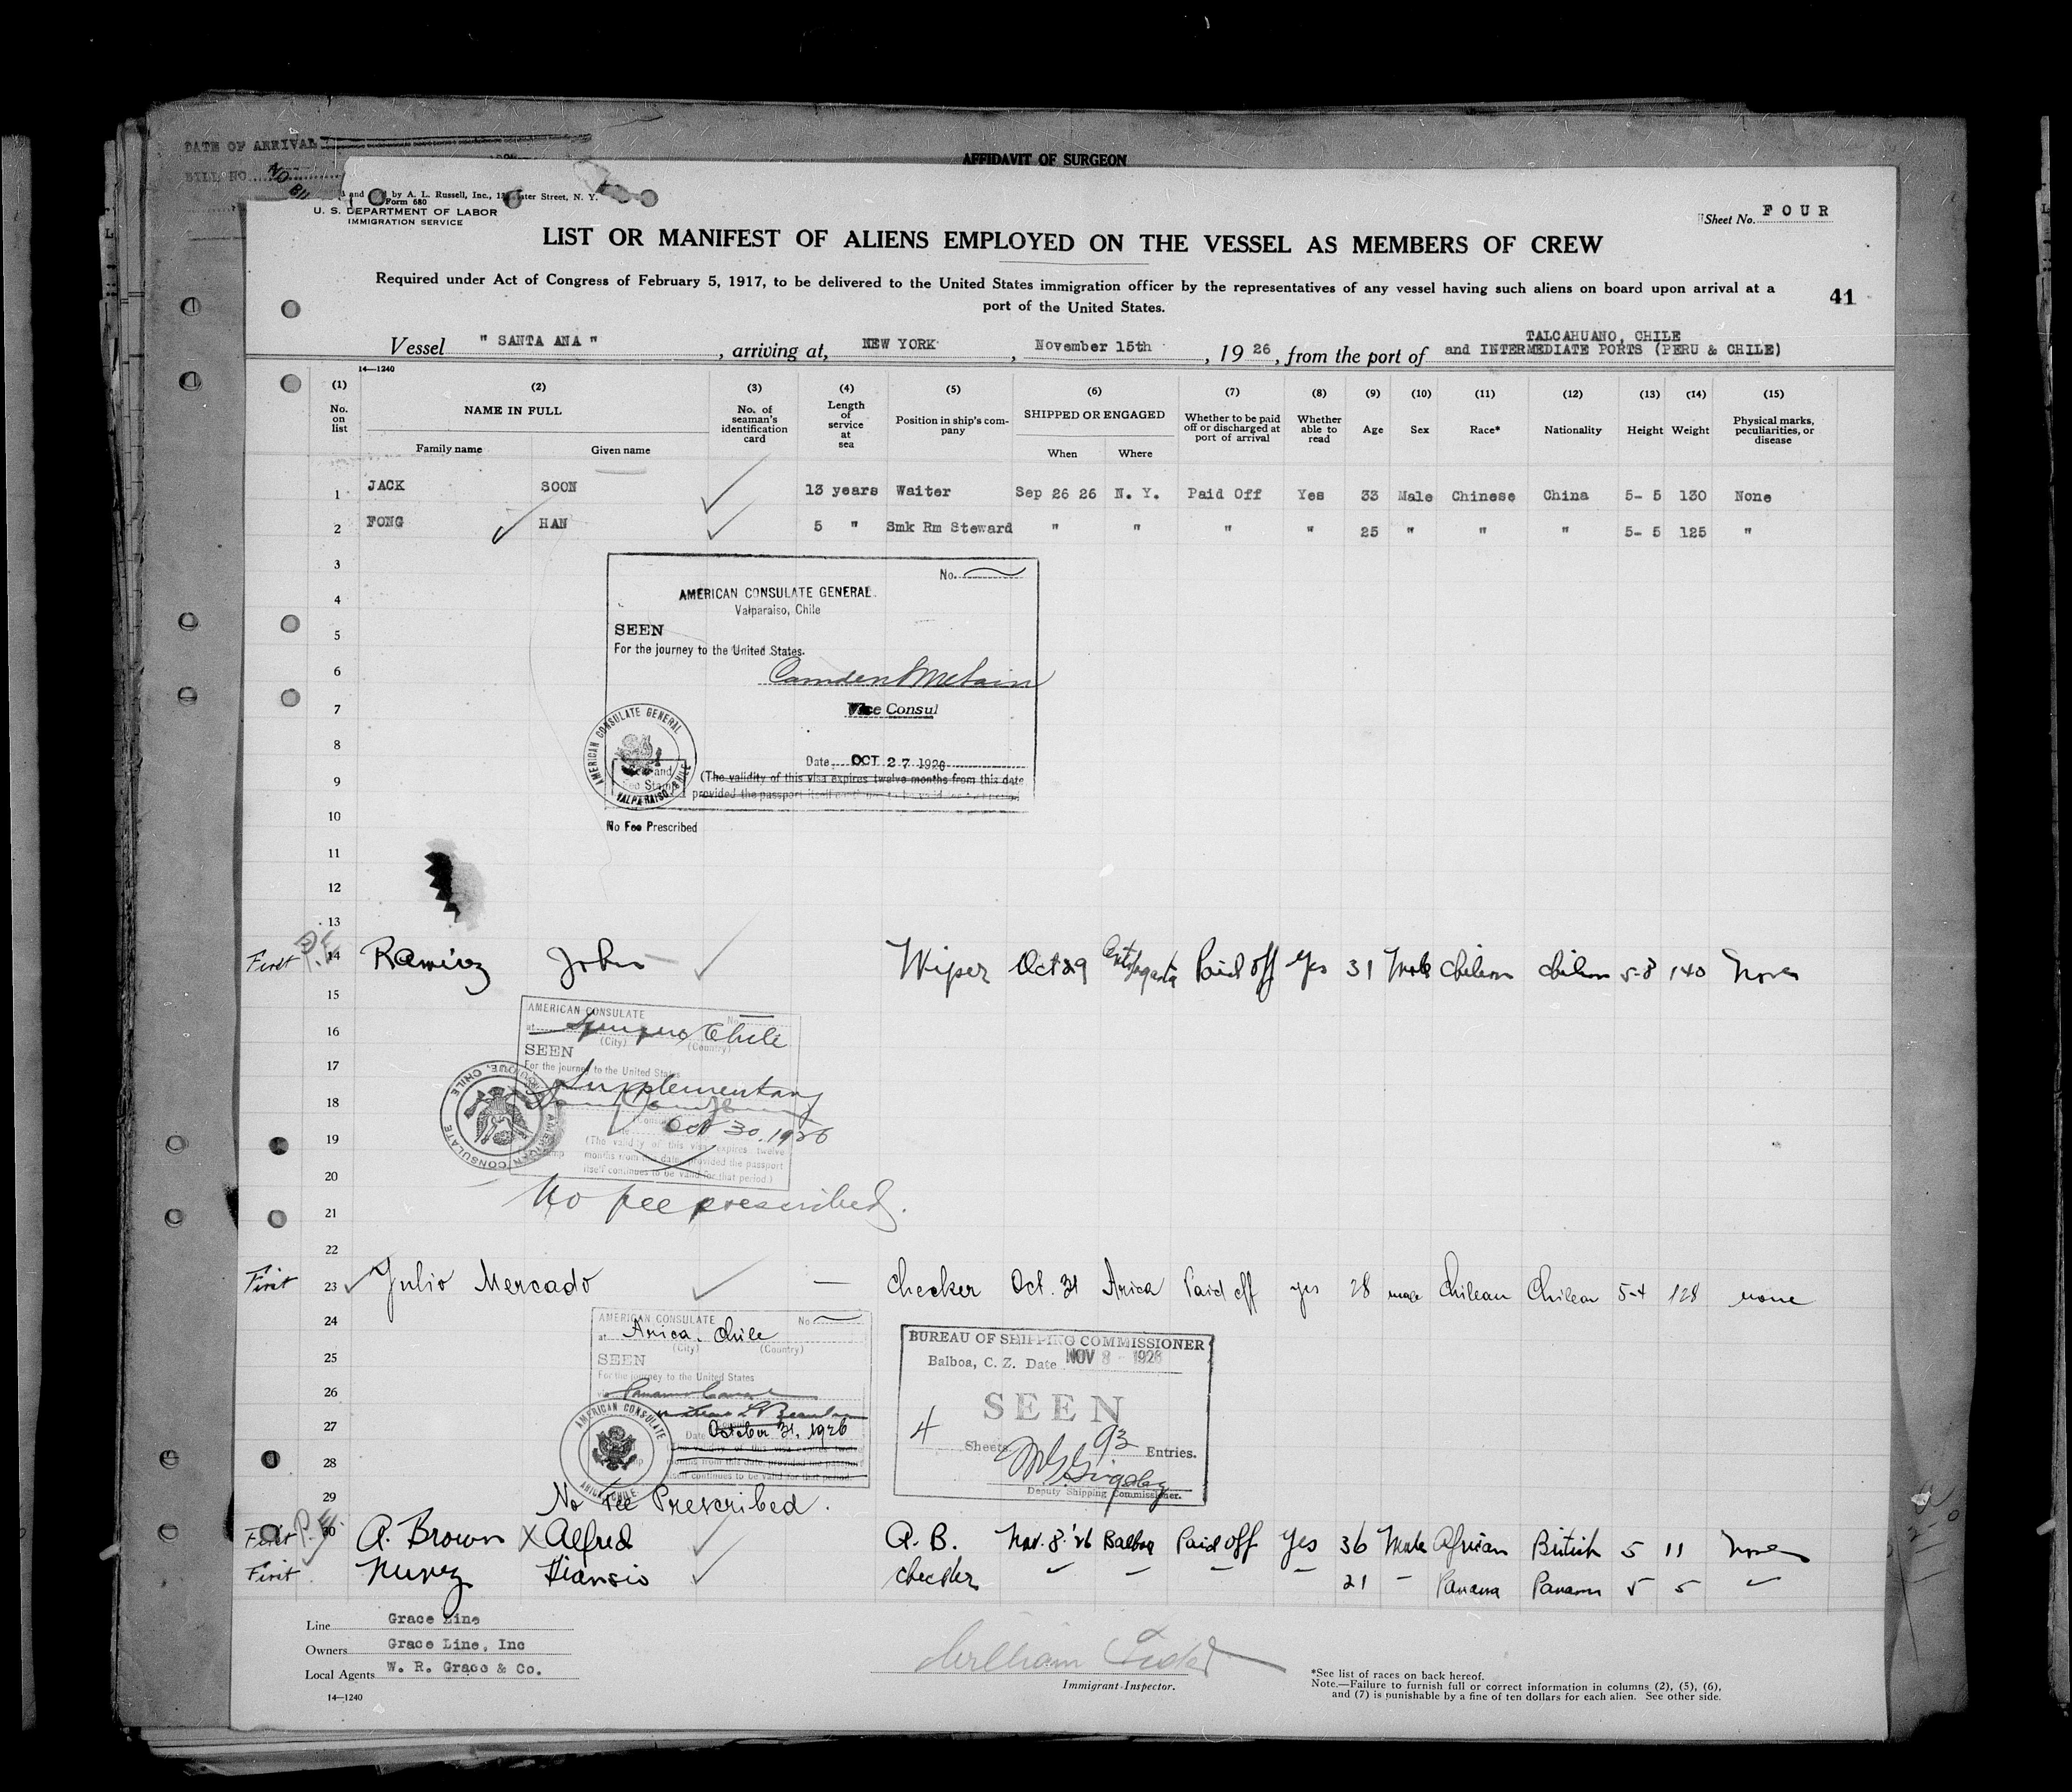 DATE OF ARRIVAL
BILL NO
AFFIDAVIT OF SURGEON
by A. L. Russell, Inc., Water Street, N. Y.
Form 680
U. S. DEPARTMENT OF LABOR
IMMIGRATION SERVICE
Sheet No. FOUR
LIST OR MANIFEST OF ALIENS EMPLOYED ON THE VESSEL AS MEMBERS OF CREW
Required under Act of Congress of February 5, 1917, to be delivered to the United States immigration officer by the representatives of any vessel having such aliens on board upon arrival at a
port of the United States.
41
Vessel " SANTA ANA " , arriving at, NEW YORK , November 15th , 1926 , from the port of TALCAHUANO, CHILE
and INTERMEDIATE PORTS (PERU & CHILE)
14—1240
(1) (2) (3) (4) (5) (6) (7) (8) (9) (10) (11) (12) (13) (14) (15)
No. on list NAME IN FULL No. of seaman's identification card Length of service at sea Position in ship's company SHIPPED OR ENGAGED Whether to be paid off or discharged at port of arrival Whether able to read Age Sex Race* Nationality Height Weight Physical marks, peculiarities, or disease
Family name Given name When Where
1 JACK SOON 13 years Waiter Sep 26 26 N. Y. Paid Off Yes 33 Male Chinese China 5- 5 130 None
2 FONG HAN 5 " Smk Rm Steward " " " " 25 " " " 5- 5 125 "
3
No.
4 AMERICAN CONSULATE GENERAL.
Valparaiso, Chile
5 SEEN
For the journey to the United States.
6
7 Vice Consul
8
Date OCT 27 1926
9 (The validity of this visa expires twelve months from this date
provided the passport itself continues to be valid
AMERICAN CONSULATE GENERAL VALPARAISO, CHILE
10 No Fee Prescribed
11
12
13
First P.E. 14 Ramirez John Wiper Oct 29 Antofagasta Paid off Yes 31 Male Chilean Chilean 5-8 140 None
15 AMERICAN CONSULATE No
16 at Chile
(City) (Country)
SEEN
17 For the journey to the United States
Supplementary
18
Oct 30, 1926
19 (The validity of this visa expires twelve
months from this date, provided the passport
20 itself continues to be valid for that period.)
AMERICAN CONSULATE IQUIQUE, CHILE
No fee prescribed.
21
22
First 23 Julio Mercado — checker Oct. 31 Arica Paid off yes 28 male Chilean Chilean 5-4 128 none
24 AMERICAN CONSULATE No
at Arica, Chile
(City) (Country)
25 SEEN
For the journey to the United States
26 via Panama Canal
27 Date October 31, 1926
28 months from this date, provided the passport
itself continues to be valid for that period.
AMERICAN CONSULATE ARICA, CHILE
29 No Fee Prescribed.
BUREAU OF SHIPPING COMMISSIONER
Balboa, C. Z. Date NOV 8 - 1926
SEEN
4 Sheets 93 Entries.
Deputy Shipping Commissioner.
First P.E. 30 A. Brown X Alfred A. B. Nov. 8. '26 Balboa Paid off Yes 36 Male African British 5 11 None
First Nunez checker 21 Panama Panama 5 5
Line Grace Line
Owners Grace Line, Inc
Local Agents W. R. Grace & Co.
14—1240
William
Immigrant Inspector.
*See list of races on back hereof.
Note.—Failure to furnish full or correct information in columns (2), (5), (6),
and (7) is punishable by a fine of ten dollars for each alien. See other side.